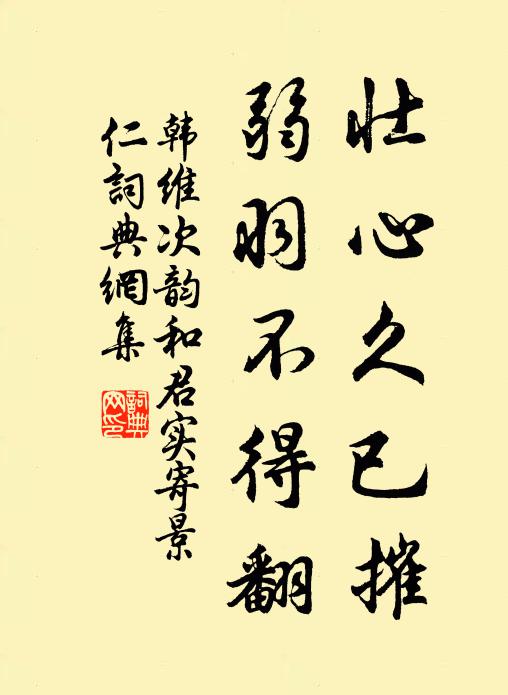 壮心久已摧
弱羽不得翻
韩维次韵和君实寄景
仁詞典網集
詞典
网印